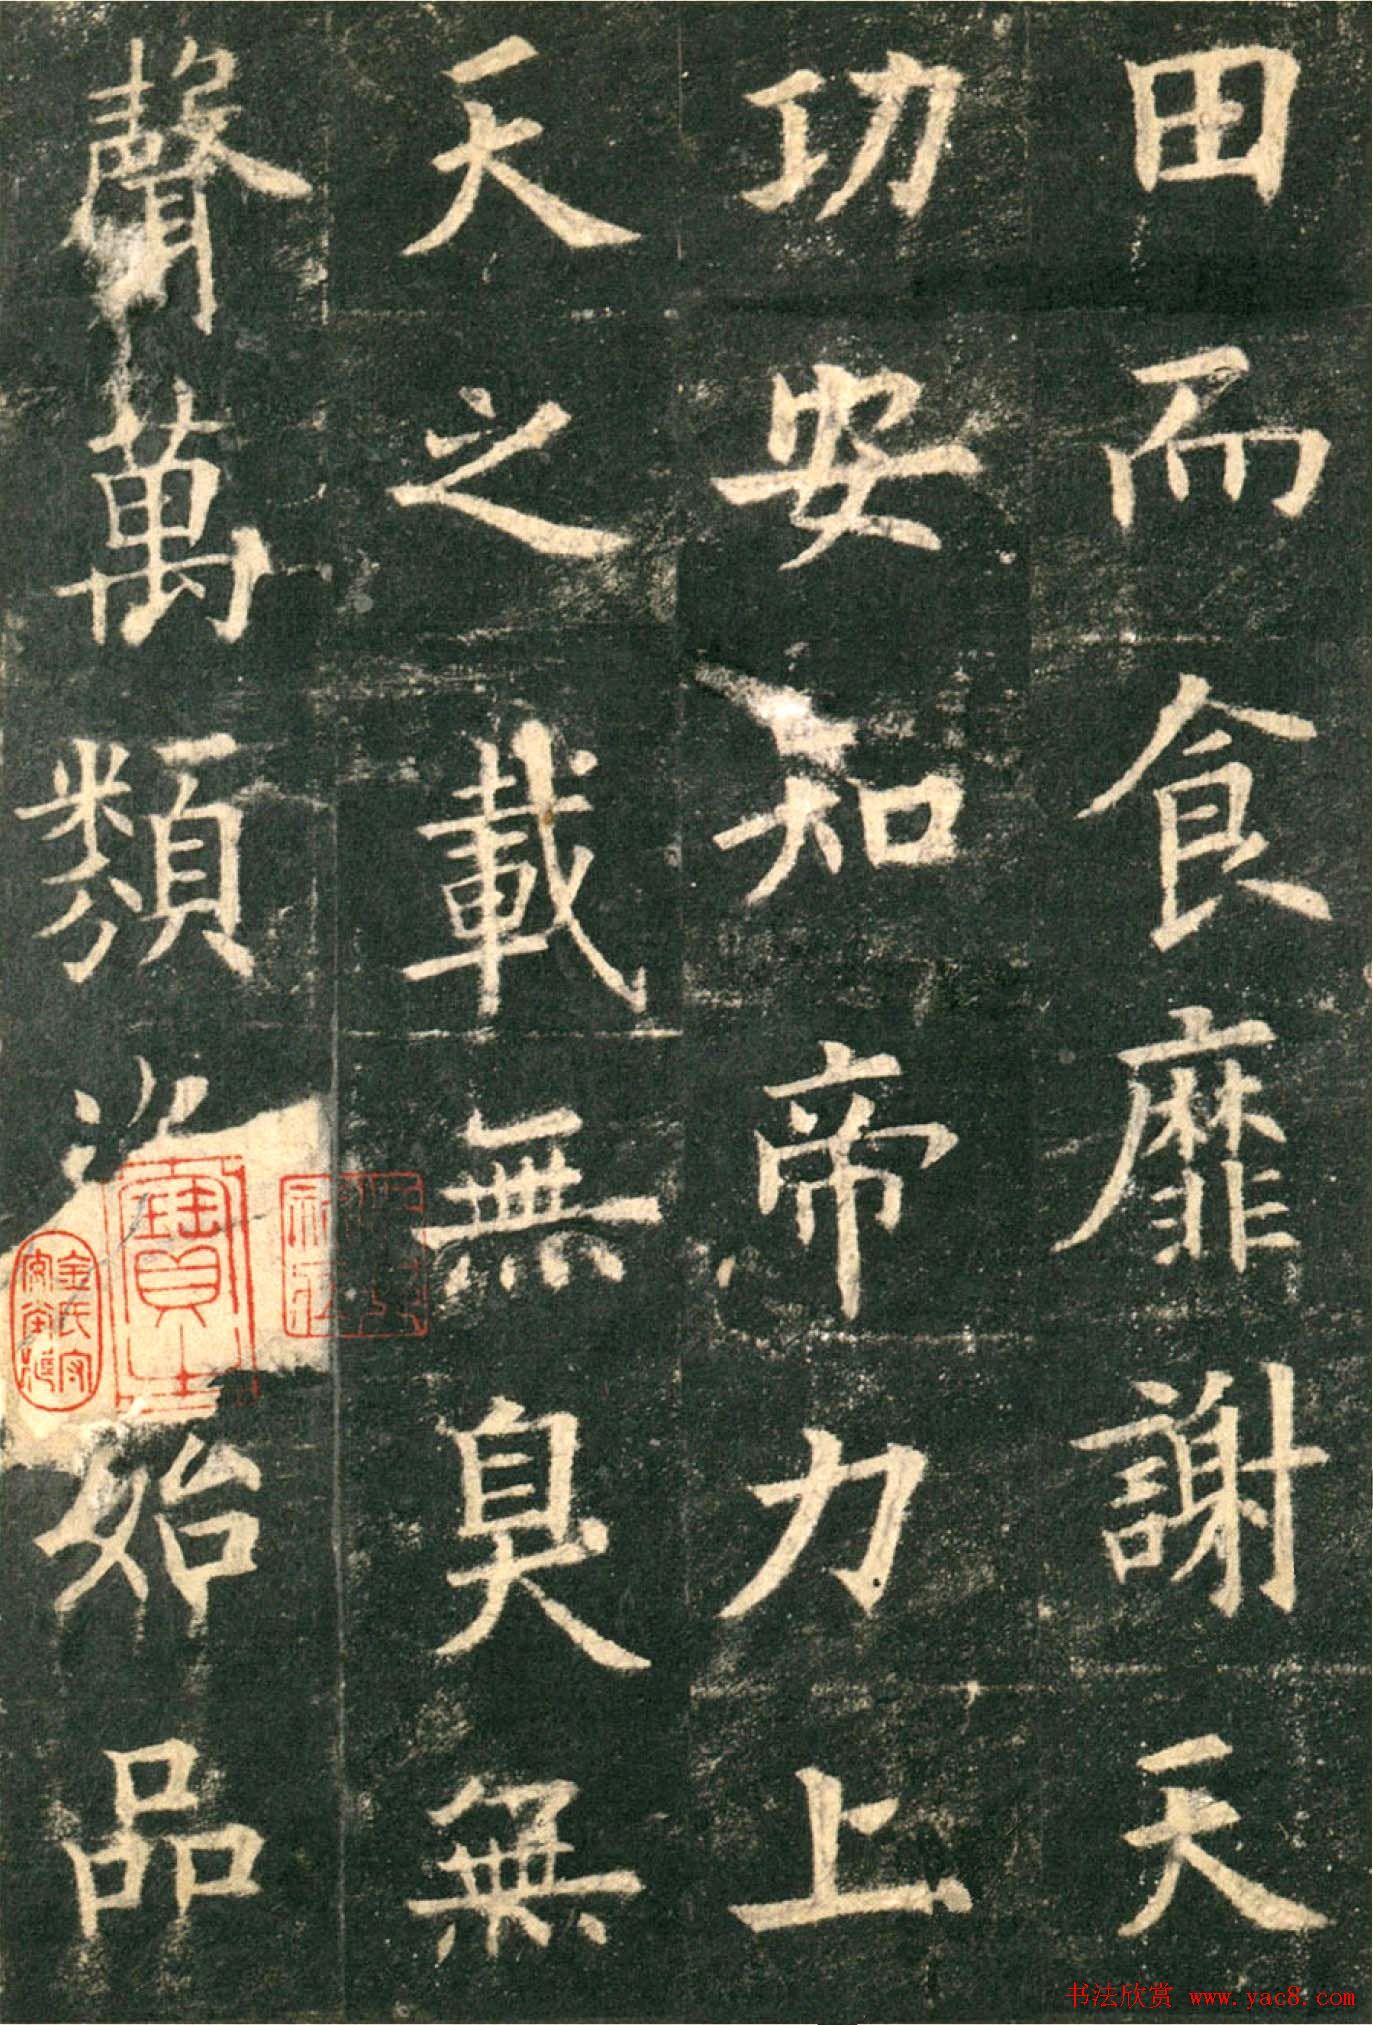 田而食靡謝天
功安知帝力上
天之載無臭無
聲萬類資始品
金氏
书法欣赏 www.yac8.com